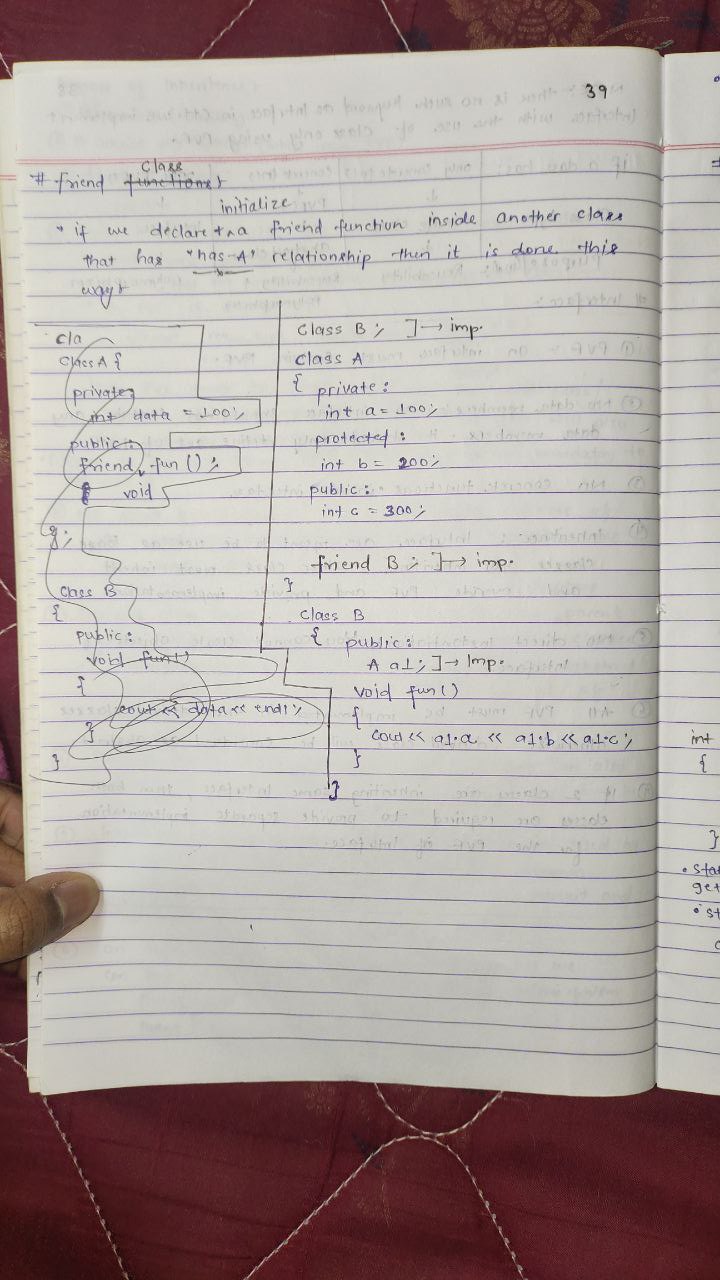 39
# friend functions class
initialize
* if we declare a friend function inside another class
that has "has-A" relationship then it is done this
way
cla
class A {
private:
int data = 100;
public:
friend fun();
void
};
class B
{
public:
void fun()
{
cout << data << endl;
}
}
class B; ]→ imp.
class A
{ private:
int a = 100;
protected:
int b = 200;
public:
int c = 300;
friend B; ]→ imp.
}
class B
{ public:
A a1; ]→ Imp.
void fun()
{
cout << a1.a << a1.b << a1.c;
}
}
int
{
}
• sta
get
• st